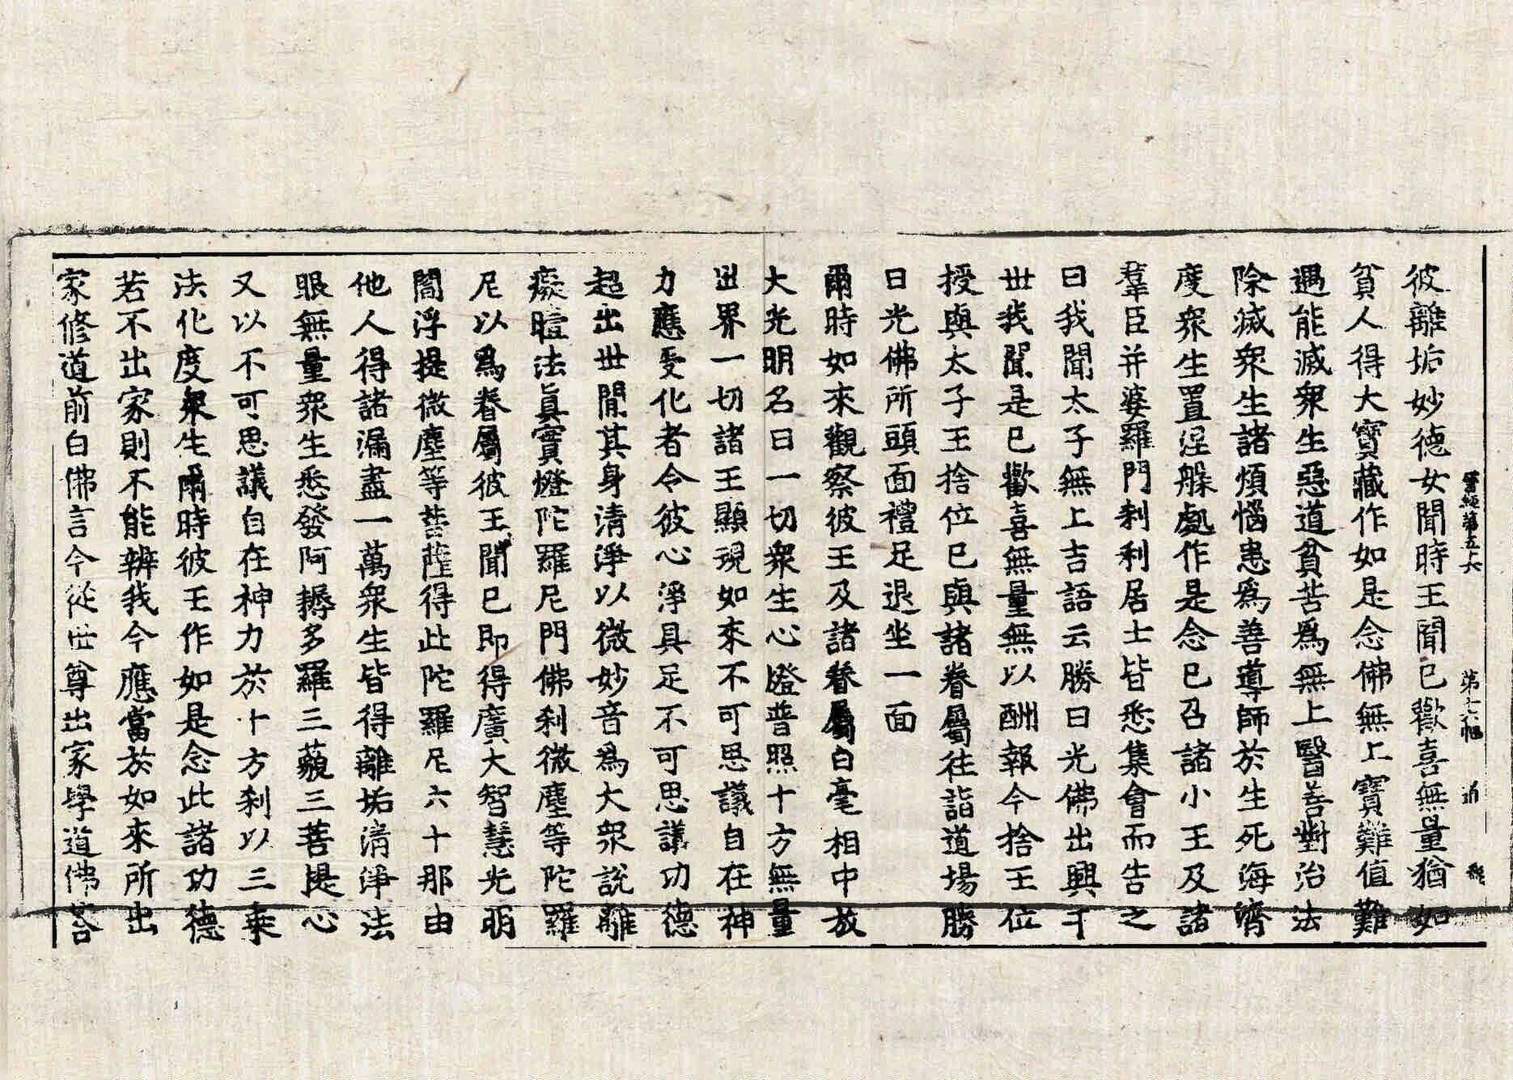 彼離垢妙德女聞時王聞已歡喜無量猶如
貧人得大寶藏作如是念佛無上寶難值難
遇能滅衆生惡道貧苦爲無上醫善對治法
除滅衆生諸煩惱患爲善導師於生死海濟
度衆生置涅槃處作是念已召諸小王及諸
羣臣并婆羅門刹利居士皆悉集會而告之
曰我聞太子無上吉語云勝日光佛出興于
世我聞是已歡喜無量無以酬報今捨王位
授與太子王捨位已與諸眷屬往詣道場勝
日光佛所頭面禮足退坐一面
爾時如來觀察彼王及諸眷屬白毫相中放
大光明名曰一切衆生心燈普照十方無量
世界一切諸王顯現如來不可思議自在神
力應受化者令彼心淨具足不可思議功德
超出世間其身清淨以微妙音爲大衆說離
癡曀法眞實燈陀羅尼門佛刹微塵等陀羅
尼以爲眷屬彼王聞已即得廣大智慧光明
閻浮提微塵等菩薩得此陀羅尼六十那由
他人得諸漏盡一萬衆生皆得離垢清淨法
眼無量衆生悉發阿耨多羅三藐三菩提心
又以不可思議自在神力於十方刹以三乘
法化度衆生爾時彼王作如是念此諸功德
若不出家則不能辨我今應當於如來所出
家修道前白佛言今從世尊出家學道佛荅